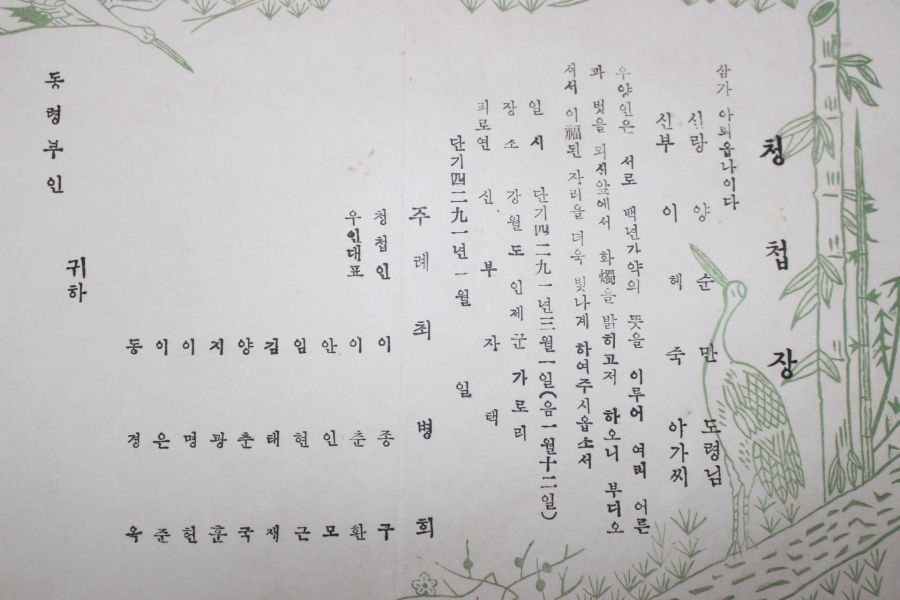 청첩장
삼가 아뢰옵나이다
신랑 양 순 만 도령님
신부 이 혜 숙 아가씨
우양인은 서로 백년가약의 뜻을 이루어 여러 어른
과 벗을 뫼신앞에서 화燭을 밝히고저 하오니 부디오
셔서 이福된 자리를 더욱 빛나게 하여주시옵소서
일 시 단기四二九一년三월一일(음一월十二일)
장 소 강원도 인제군 가로리
피로연 신 부 자 택
단기四二九一년 一월 일
주 례 최 병 희
청첩인 이 종 구
우인대표 이 춘 환
안 인 모
임 현 근
김 태 재
양 춘 국
지 광 훈
이 명 현
이 은 준
동 경 옥
동령부인 귀하